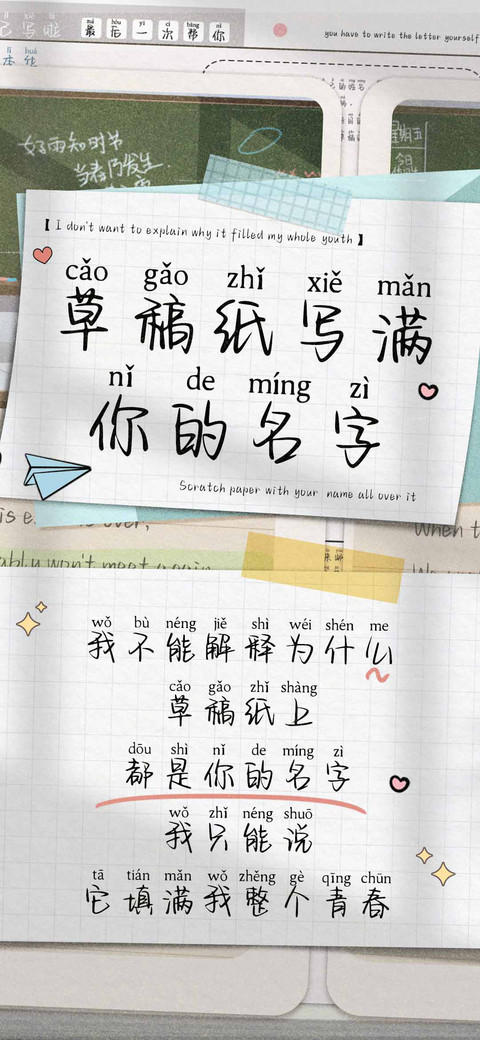 zuì hòu yī cì bāng nǐ
最后一次帮你
you have to write the letter yourself
好雨知时节
当春乃发生
星期五
今日
【 I don't want to explain why it filled my whole youth 】
cǎo gǎo zhǐ xiě mǎn
草稿纸写满
nǐ de míng zì
你的名字
Scratch paper with your name all over it
When t
wǒ bù néng jiě shì wéi shén me
我不能解释为什么
cǎo gǎo zhǐ shàng
草稿纸上
dōu shì nǐ de míng zì
都是你的名字
wǒ zhǐ néng shuō
我只能说
tā tián mǎn wǒ zhěng gè qīng chūn
它填满我整个青春